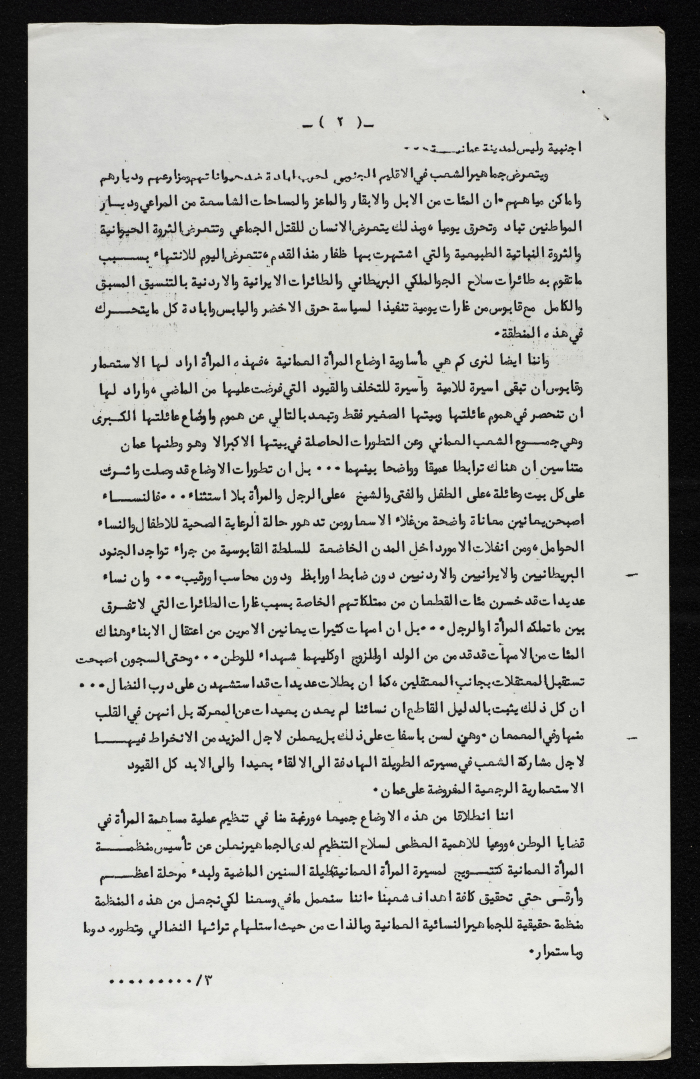 ـ( ٢ )ـ
اجنبية وليس لمدينة عمانيـــة ...
ويتعرض جماهير الشعب في الاقليم الجنوبي لحرب ابادة ضد حيواناتهم ومزارعهم وديارهم
واماكن مياههم . ان المئات من الابل والابقار والماعز والمساحات الشاسعة من المراعي وديـــار
المواطنين تباد وتحرق يوميا ، وبذلك يتعرض الانسان للقتل الجماعي وتتعرض الثروة الحيوانية
والثروة النباتية الطبيعية والتي اشتهرت بها ظفار منذ القدم ، تتعرض اليوم للانتهاء بســـبب
ما تقوم به طائرات سلاح الجو الملكي البريطاني والطائرات الايرانية والاردنية بالتنسيق المسبق
والكامل مع قابوس من غارات يومية تنفيذا لسياسة حرق الاخضر واليابس وابادة كل ما يتحـــرك
في هذه المنطقة .
واننا ايضا لنرى كم هي مأساوية اوضاع المرأة العمانية ، فهذه المرأة اراد لها الاستعمار
وقابوس ان تبقى اسيرة للامية وأسيرة للتخلف والقيود التي فرضت عليها من الماضي ، واراد لها
ان تنحصر في هموم عائلتها وبيتها الصغير فقط وتبعد بالتالي عن هموم واوضاع عائلتها الكــبرى
وهي جمــوع الشعب العماني وعن التطورات الحاصلة في بيتها الاكبر الا وهو وطنها عمان
متناسين ان هناك ترابطا عميقا وواضحا بينهما ... بل ان تطورات الاوضاع قد وصلت واثـرت
على كل بيت وعائلة ، على الطفل والفتى والشيخ ، على الرجل والمرأة بلا استثناء ... فالنســـاء
اصبحن يعانين معاناة واضحة من غلاء الاسعار ومن تدهور حالة الرعاية الصحية للاطفال والنساء
الحوامل ، ومن انفلات الامور داخل المدن الخاضعة للسلطة القابوسية من جراء تواجد الجنود
البريطانيين والايرانيين والاردنيين دون ضابط او رابط ودون محاسب او رقيب ... وان نساء
عديدات قد خسرن مئات القطعان من ممتلكاتهم الخاصة بسبب غارات الطائرات التي لا تفــرق
بين ما تملكه المرأة او الرجل ... بل ان امهات كثيرات يعانين الامرين من اعتقال الابناء وهناك
المئات من الامهات قد فقدن من الولد او الزوج او كليهما شهداء للوطن ... وحتى السجون اصبحت
تستقبل المعتقلات بجانب المعتقلين ، كما ان بطلات عديدات قد استشهدن على درب النضال ...
ان كل ذلك يثبت بالدليل القاطع ان نسائنا لم يعدن بعيدات عن المعركة بل انهن في القلب
منها وفي المعمعان . وهن لسن باسفات على ذلك بل يعملن لاجل المزيد من الانخراط فيهـــا
لاجل مشاركة الشعب في مسيرته الطويلة الهادفة الى الالقاء بعيدا والى الابد كل القيود
الاستعمارية الرجعية المفروضة على عمان .
اننا انطلاقا من هذه الاوضاع جميعا ، ورغبة منا في تنظيم عملية مساهمة المرأة في
قضايا الوطن ، ووعيا للاهمية العظمى لسلاح التنظيم لدى الجماهير نعلن عن تأسيس منظمـــة
المرأة العمانية كتتـــويج لمسيرة المرأة العمانية طيلة السنين الماضية ولبدء مرحلة اعظـــم
وأرقــى حتى تحقيق كافة اهداف شعبنا . اننا سنعمل ما في وسعنا لكي نجعل من هذه المنظمة
منظمة حقيقية للجماهير النسائية العمانية وبالذات من حيث استلهام تراثها النضالي وتطوره دوما
وباستمرار .
٣/ .........